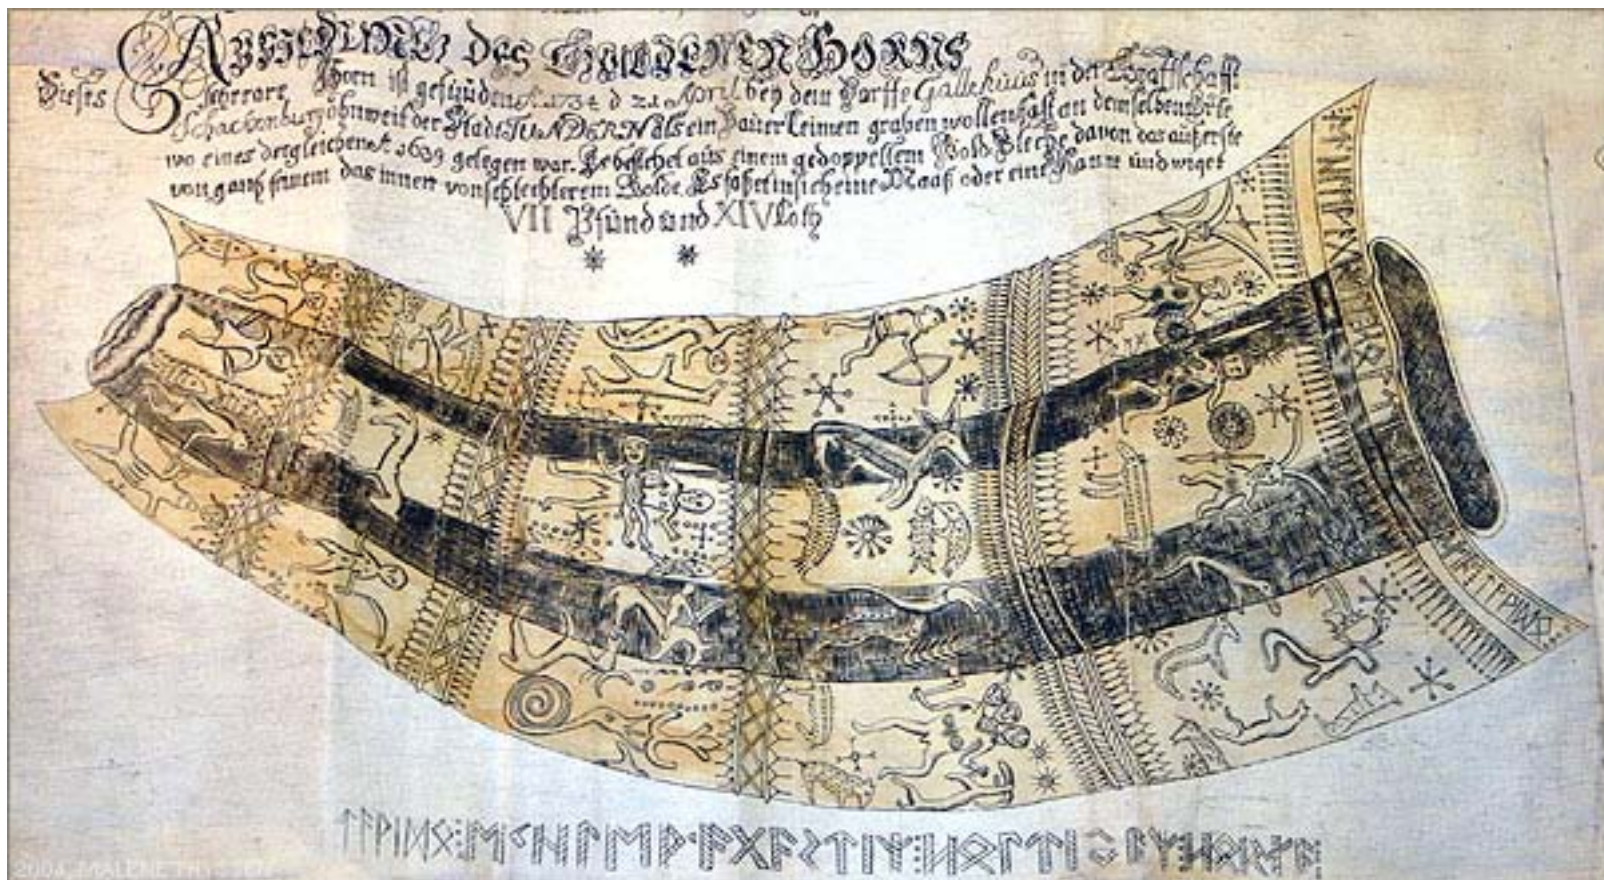 Abbildung des Guldenen Horns
Dieses Horn ist gefunden A. 1734 d 21 April bey dem Dorffe Gallehuus in der Graffschafft
Schackenburg ohnweit der Stadt TUNDERN als ein Bauer Leimen graben wollen fast an demselben Orte
wo eines dergleichen A. 1639 gelegen war. Es bestehet aus einem gedoppeltem Gold Bleche, davon das äußerste
von gantz feinem das innere von schlechterem Golde. Es faßet in sich eine Maaß oder eine Kanne und wiget
VII Pfund und XIV Loth
ᛏᚨᚹᛁᛞᛟ⁝ᛖᚲᚺᛚᛖᚹᚨᚷᚨᛊᛏᛁᛉ⁝ᚺᛟᛚᛏᛁᛃᚨᛉ⁝ᚺᛟᚱᚾᚨ⁝
2004, MALENE THYSSEN